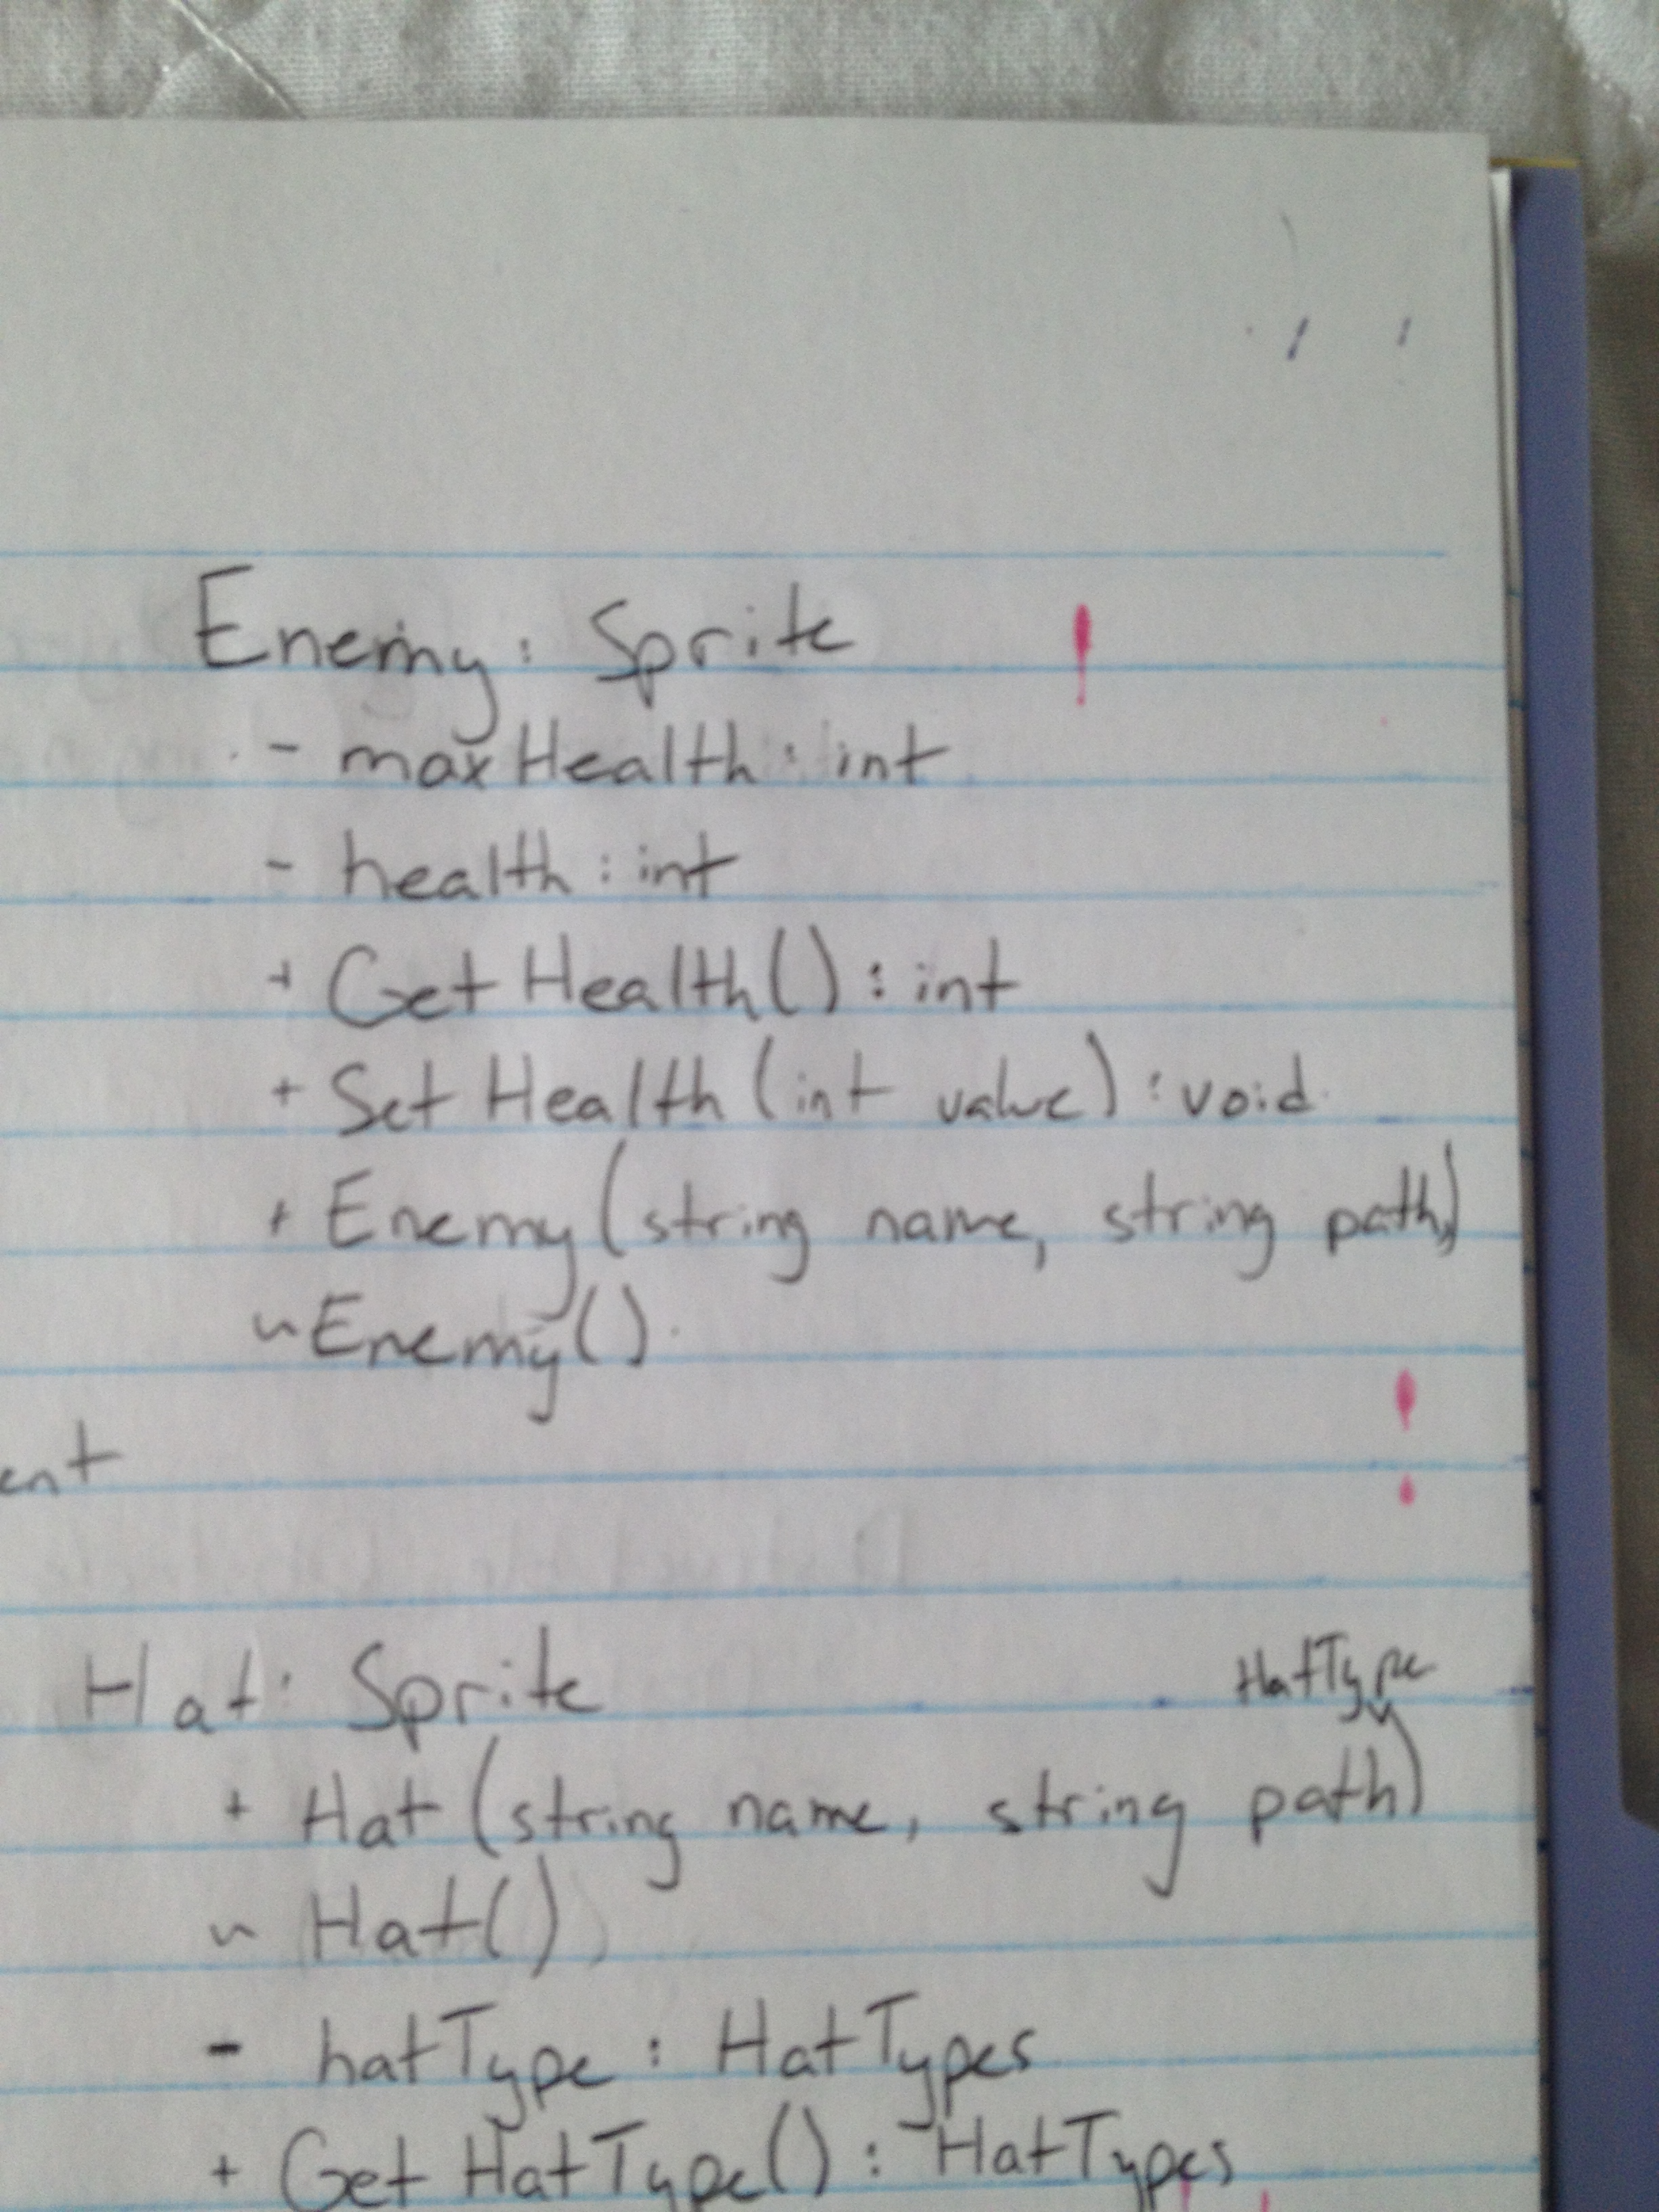 Enemy: Sprite !
- maxHealth: int
- health: int
+ GetHealth(): int
+ SetHealth(int value): void
+ Enemy(string name, string path)
~Enemy()
!
ent
Hat: Sprite
HatType
+ Hat(string name, string path)
~ Hat()
- hatType: HatTypes
+ GetHatType(): HatTypes